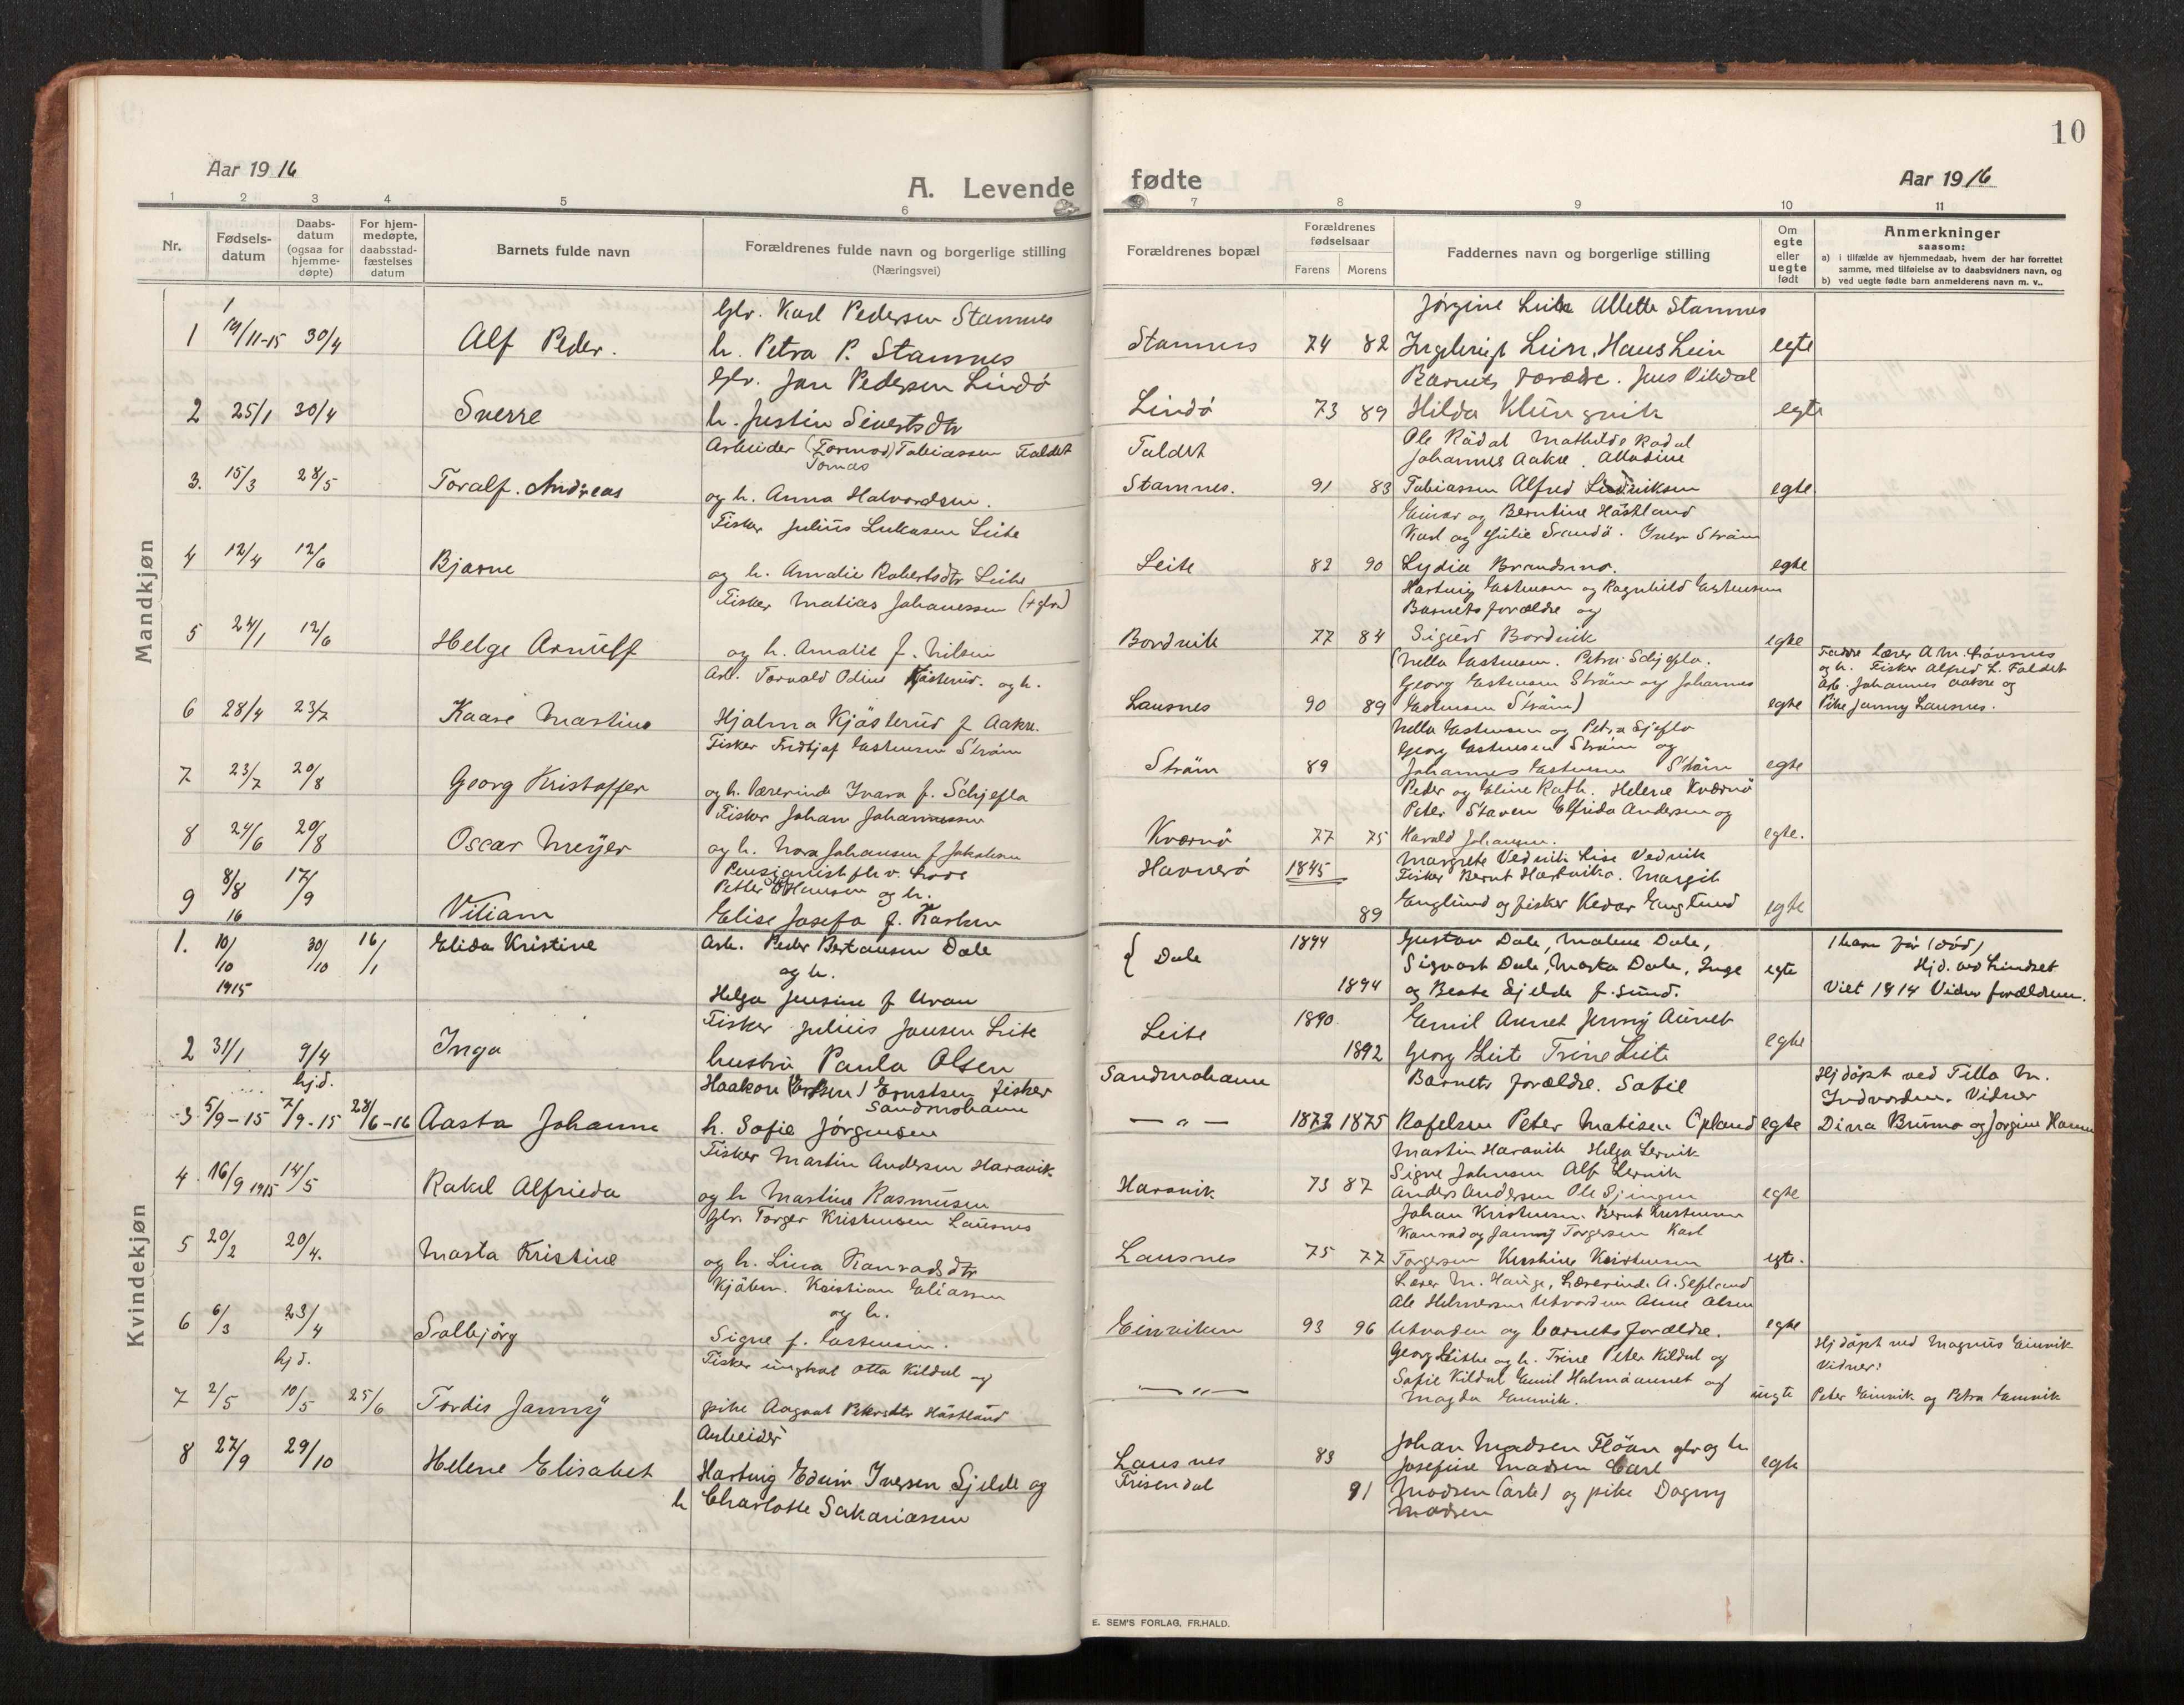 10
Aar 1916
A. Levende fødte
Aar 1916
1 2 3 4 5 6 7 8 9 10 11
Nr.
Fødsels-
datum
Daabs-
datum
(ogsaa for
hjemme-
døpte)
For hjem-
medøpte,
daabsstad-
fæstelses
datum
Barnets fulde navn
Forældrenes fulde navn og borgerlige stilling
(Næringsvei)
Forældrenes bopæl
Forældrenes
fødselsaar
Farens Morens
Faddernes navn og borgerlige stilling
Om
egte
eller
uegte
født
Anmerkninger
saasom:
a) i tilfælde av hjemmedaab, hvem der har forrettet
samme, med tilføielse av to daabsvidners navn, og
b) ved uegte fødte barn anmelderens navn m. v..
Mandkjøn
Glv. Karl Pedersen Stamnes
Jørgine Allette Stamnes
1 19/11-15 30/4 Alf Peder. h. Petra P. Stamnes Stamnes 74 82 Hans Lein egte
Glv. Jan Pedersen Lindö
Barnets
2 25/1 30/4 Sverre h. Justin Sivertsdtr Lindö 73 89 Hilda egte
Arbeider (Tormod) Tobiassen Faldet
Tomas
Faldet
Ole Rådal Mathilde Rådal
Johannes Aakre.
3. 15/3 28/5 Toralf. Andreas og h. Anna Halvordsen. Stamnes. 91 83 Tobiassen Alfred egte
Fisker Julius Lukasen Leite
Einar og Berntine Håstland
Karl og Julie Sandö. Iver Ström
4 12/4 12/6 Bjarne og h. Amalie Robertsdtr Leite Leite 82 90 Lydia egte
Fisker Matias Johanessen
Hartvig Estensen og Ragnhild Estensen
Barnets forældre og
5 24/1 12/6 Helge Arnulf og h. Amalie f. Nilsen Bordvik 77 84 Sigurd Bordvik egte
Arb. Torvald Odin og h.
(Nella Estensen. Petra Schjefla.
Georg Estensen Ström og Johannes
6 28/4 23/7 Kaare Martin Hjalma Kjösterud f Aakre. Lausnes 90 89 Estensen Ström) egte
Fadre Lærer A. M.
og h. Fisker Alfred L. Faldet
Arb. Johannes Aakre og
Pike Jenny Lausnes.
Fisker Fridtjof Estensen Ström
Nella Estensen og Petra Sjefla
Georg Estensen Ström og
7 23/7 20/8 Georg Kristoffer og h. Lærerinde Ivara f. Schjefla Ström 89 Johannes Estensen Ström egte
Fisker Johan Johannessen
Peder og Eline Rath. Helene Kværnö
Peter Staven Elfrida Andersen og
8 24/6 20/8 Oscar Meyer og h. Nora Johansen f Jakobsen Kværnö 77 75 Harald Johansen. egte.
Pensjonist
Havnerö 1845
Margrete Vedvik Lise Vedvik
Fisker Bernt Margit
9 8/8 16 17/9 Viliam Petter Hansen og h.
Elise Josefa f. Karlsen 89 Englund og fisker Kedar Englund egte
Kvindekjøn
1. 10/10 1915 30/10 16/1 Elida Kristine Arb. Peder Dale
og h.
Helga Jensine f Uran
{ Dale 1894 1894
Gustav Dale, Malene Dale,
Sigvart Dale, Marta Dale, Inge
og Beate Sjelde f. Sund. egte
1 barn før (död)
Hj d. ved Lindset
Viet 1914 Vidner forældrene.
Fisker Julius Jansen Leite
2 31/1 9/4 Inga hustru Paula Olsen Leite 1890 1892
Emil Aunet Jenny Aunet
Georg Leite Trine Leite egte
hj.d.
Haakon Ernstsen fisker
Sandmohavn
Sandmohavn
Barnets forældre. Sofie
Hj döpt ved Tilla M.
Indvorden. Vidner
3 5/9-15 7/9-15 28/6-16 Aasta Johanne h. Sofie Jörgensen —„— 1872 1875 Rafelsen Peter Matisen Opland egte Dina Brumo og Jorgine Hamn
Fisker Martin Andersen Haravik
Martin Haravik Helga Lervik
Signe Johnsen Alf Lervik
4. 16/9 1915 14/5 Rakel Alfrieda og h Martine Rasmusen Haravik 73 87 Anders Andersen Ole egte
Glv. Torger Kristensen Lausnes
Johan Kristensen. Bernt Kristensen
Konrad og Jenny Torgersen Karl
5 20/2 20/4. Marta Kristine og h. Lina Konradsdtr Lausnes 75 77 Torgersen Kristine Kristensen egte.
Kjöbm. Kristian Eliassen
og h.
Lærer M. Hauge, Lærerinde A. Sefland
Ole Helmersen Utvorden Anne Olsen
6 6/3 23/4 Solbjörg Signe f. Estensen. Einviken 93 96 Utvorden og barnets forældre. egte
hj d.
Fisker ungkar Otto Kildal og
Georg Leithe og h. Trine Peter Kildal og
Sofie Kildal Emil Halmöaunet og
Hj döpt ved Magnus Einvik
Vidner:
7 2/5 10/5 25/6 Tordis Jenny pike Aagaat Pedersdtr Håstland —„— Magda Einvik. uegte Peter Einvik og Petra Einvik
Arbeider
8 27/9 29/10 Helene Elisabet Hartvig Edvin Iversen Sjelde og
h Charlotte Sakariassen
Lausnes
Frisendal
83 91
Johan Madsen Flöan glv og h
Josefine Madsen Carl
Madsen (arb) og pike Dagny
Madsen
egte
E. SEM'S FORLAG, FR.HALD.